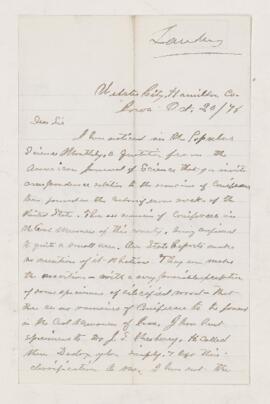 Landers
Webster City, Hamilton Co.
Iowa Oct. 20/76
Dear Sir
I have noticed in the Popular
Science Monthly, a quotation from the
American Journal of Science that you invite
correspondence relative to the remains of Coniferae
found in the
United States. The remains of Coniferae in
the Coal Measures of this county, being confined
to quite a small area. Our State Reports make
no mention of it whatever. They even make
the assertion – with a very
of some specimens of silicified wood – that
there are no remains of Coniferae to be found
in the Coal Measures of Iowa. I have sent
specimens to Dr. J. S. Newberry. He called
them Dadoxylon simply. I left this
classification to one. I have not the